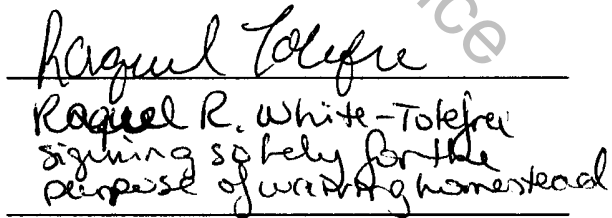 ice
Raquel Tolefre
Raquel R. White-Tolefree
signing solely for the
purpose of waiving homestead